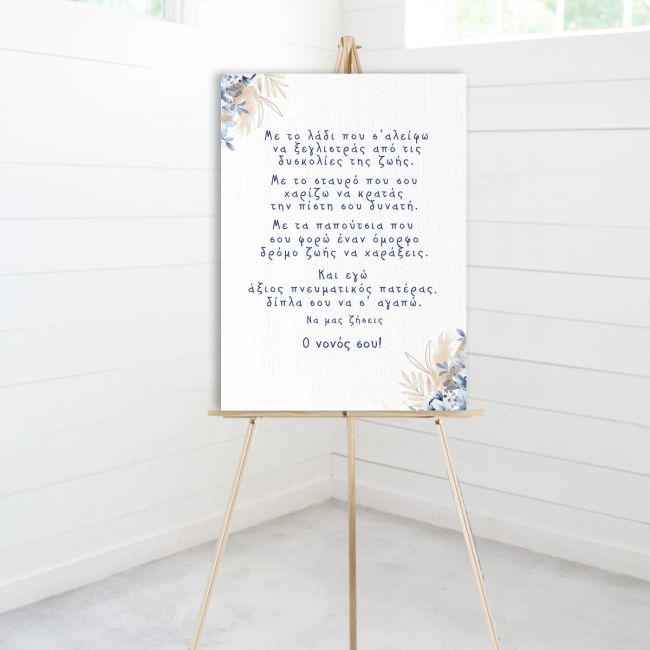 Με το λάδι που σ'αλείφω
να ξεγλιστράς από τις
δυσκολίες της ζωής.
Με το σταυρό που σου
χαρίζω να κρατάς
την πίστη σου δυνατή.
Με τα παπούτσια που
σου φορώ έναν όμορφο
δρόμο ζωής να χαράξεις.
Και εγώ
άξιος πνευματικός πατέρας,
δίπλα σου να σ' αγαπώ.
Να μας ζήσεις
Ο νονός σου!